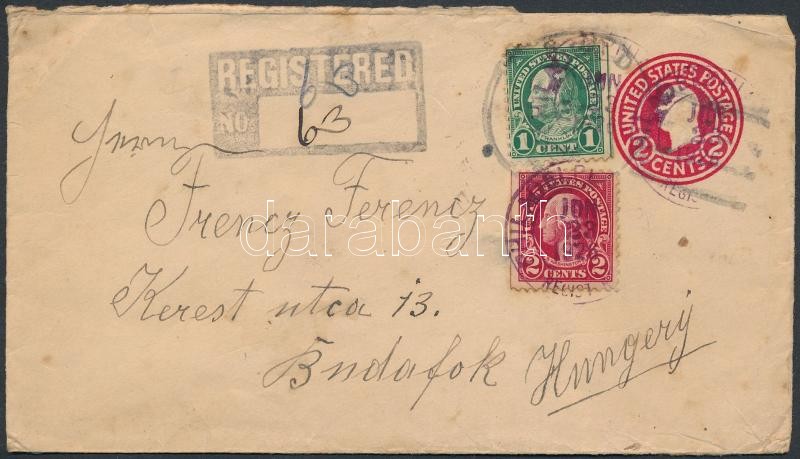 REGISTERED
NO.
63
UNITED STATES POSTAGE
FRANKLIN
1 1
CENT
UNITED STATES POSTAGE
2 2
CENTS
STATES POSTAGE
WASHINGTON
2 2
CENTS
Herrn
Frencz Ferencz
Kerest utca 13.
Budafok Hungery
darabanth